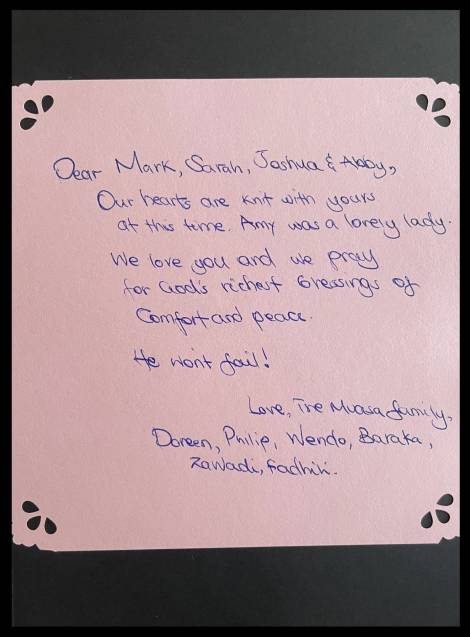 Dear Mark, Sarah, Joshua & Abby,
Our hearts are knit with yours
at this time. Amy was a lovely lady.
We love you and we pray
for God's richest blessings of
Comfort and peace.
He won't fail!
Love, The Muasa family,
Doreen, Philip, Wendo, Baraka,
Zawadi, Fadhili.